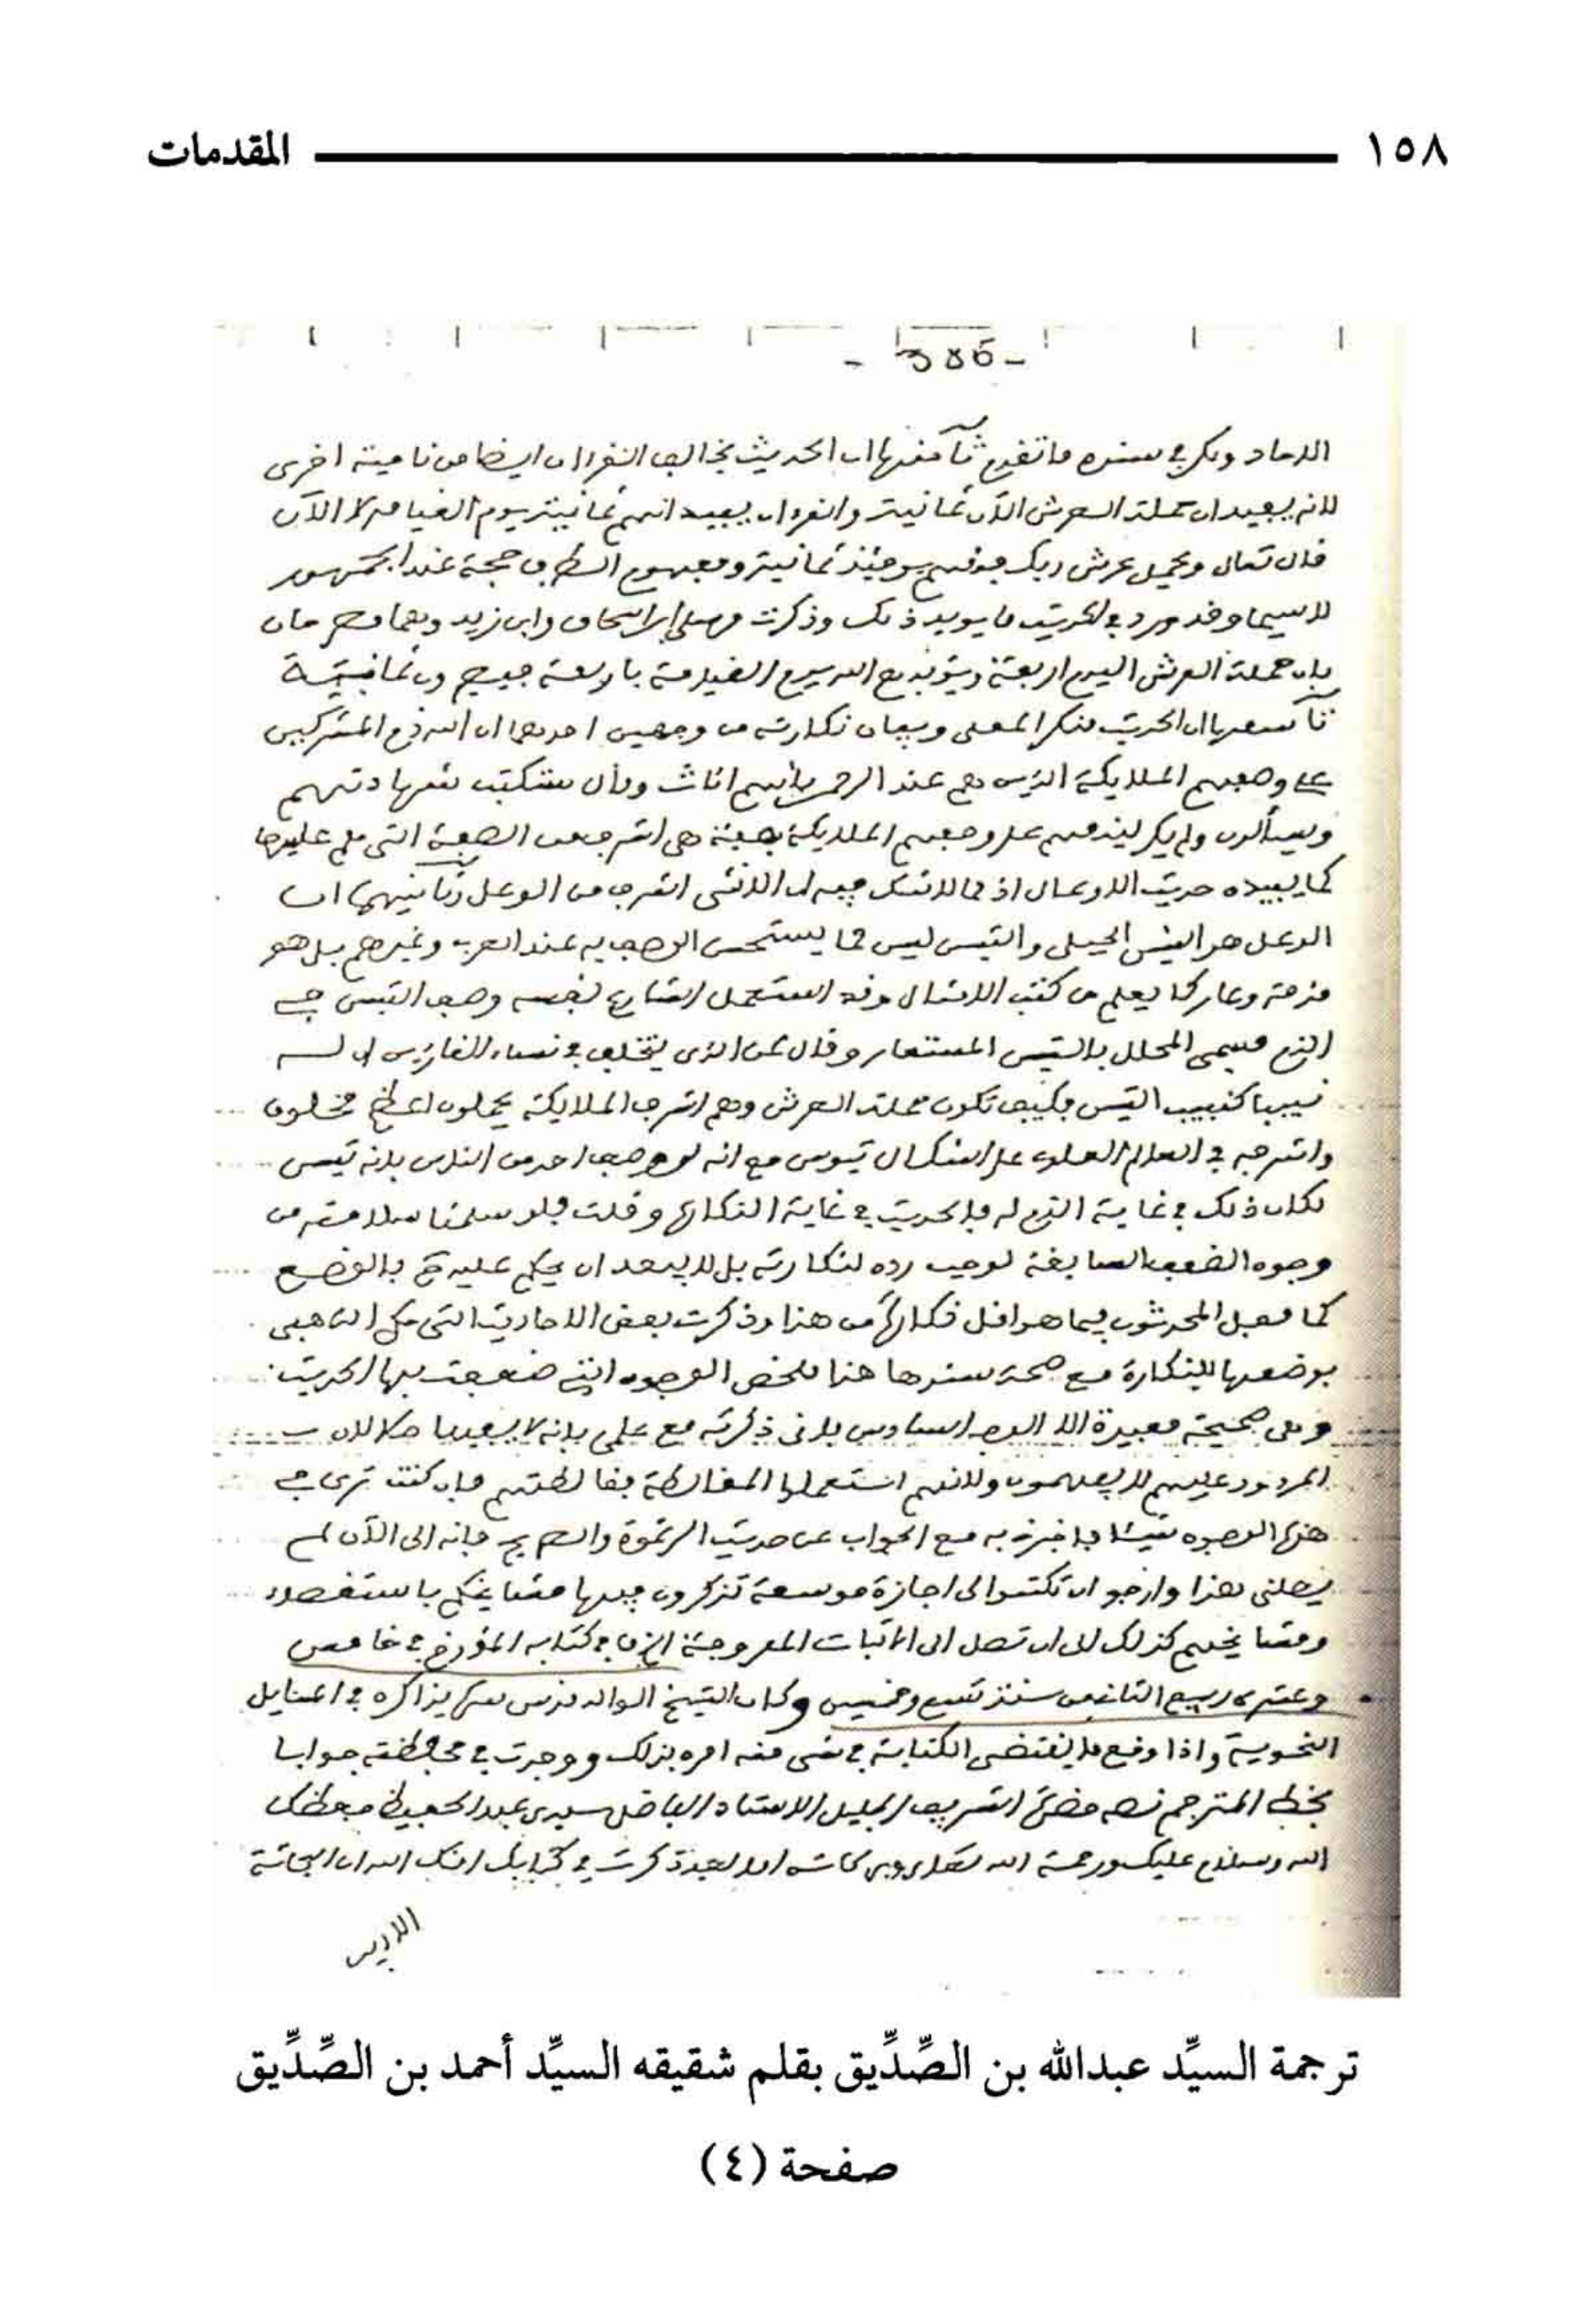 ١٥٨ المقدمات
- 386 -
الآحاد ولكن في سنده ما تقدم ثامنها ان الحديث يخالف القرءان ايضا من ناحية اخرى
لانه يفيد ان حملة العرش الآن ثمانية والقرءان يفيد انهم ثمانية يوم القيامة لا الآن
قال تعالى ويحمل عرش ربك فوقهم يومئذ ثمانية ومفهوم الظرف حجة عند الجمهور
لاسيما وقد ورد في الحديث ما يويد ذلك وذكرت مرسلي ابن اسحاق وابن زيد وهما مصرحان
بان حملة العرش اليوم اربعة ويؤيدهم الله يوم القيامة باربعة فيصيرون ثمانية
تاسعها ان الحديث منكر المعنى وبيان نكارته من وجهين احدهما ان الله ذم المشركين
على وصفهم الملايكة الذين هم عند الرحمن بانهم اناث وقال ستكتب شهادتهم
ويسألون ولم يكن ليذمهم على وصفهم الملايكة بصفة هي اشرف من الصفة التي هم عليها
كما يفيده حديث الاوعال اذ مما لا شك فيه ان الانثى اشرف من الوعل ثانيهما ان
الوعل هو التيس الجبلي والتيس ليس مما يستحسن الوصف به عند العرب وغيرهم بل هو
مذمة وعار كما يعلم من كتب الامثال وقد استعمل الشارع نفسه وصف التيس في
الذم فسمى المحلل بالتيس المستعار وقال لمن الذي يتخلف في نساء الغازين ان له
نبيبا كنبيب التيس فكيف تكون حملة العرش وهم اشرف الملايكة يحملون اعظم مخلوق
واشرفه في العالم العلوي على اشكال تيوس مع انه لو وصف احد من الناس بانه تيس
لكان ذلك في غاية الذم له فالحديث في غاية النكارة وقلت فلو سلمنا سلامته من
وجوه الضعف السابقة لوجب رده لنكارته بل لا يبعد ان يحكم عليه بالوضع
كما فعل المحدثون فيما هو اقل نكارة من هذا وذكرت بعض الاحاديث التي حكم الذهبي
بوضعها للنكارة مع صحة سندها هذا ملخص الوجوه التي ضعفت بها الحديث
وهي صحيحة مفيدة الا الوجه السادس فاني ذكرته مع علمي بانه لا يفيد لان
المردود عليهم لا يفهمون ولانهم استعملوا المغالطة فغالطتهم فان كنت ترى في
هذه الوجوه شيئا فاخبرني به مع الجواب عن حديث الرغوة والصريح فانه الى الآن لم
يصلني هذا وارجو ان تكتبوا لي اجازة موسعة تذكرون فيها مشايخكم باستقصاء
ومشايخهم كذلك الى ان تصل الى الاثبات المعروفة الخ ما في كتابه المؤرخ في خامس
وعشري ربيع الثاني من سنة تسع وخمسين وكان الشيخ الوالد قدس سره يذاكره في المسايل
النحوية واذا وقع ما يقتضي الكتابة في شيء منه امره بذلك ووجدت في محافظته جوابا
بخط المترجم نصه حضرة الشريف الجليل الاستاذ الفاضل سيدي عبد الحفيظ حفظك
الله وسلام عليك ورحمة الله تعالى وبركاته اما بعد ذكرت في كتابك
الاديب
ترجمة السيِّد عبدالله بن الصِّدِّيق بقلم شقيقه السيِّد أحمد بن الصِّدِّيق
صفحة (٤)